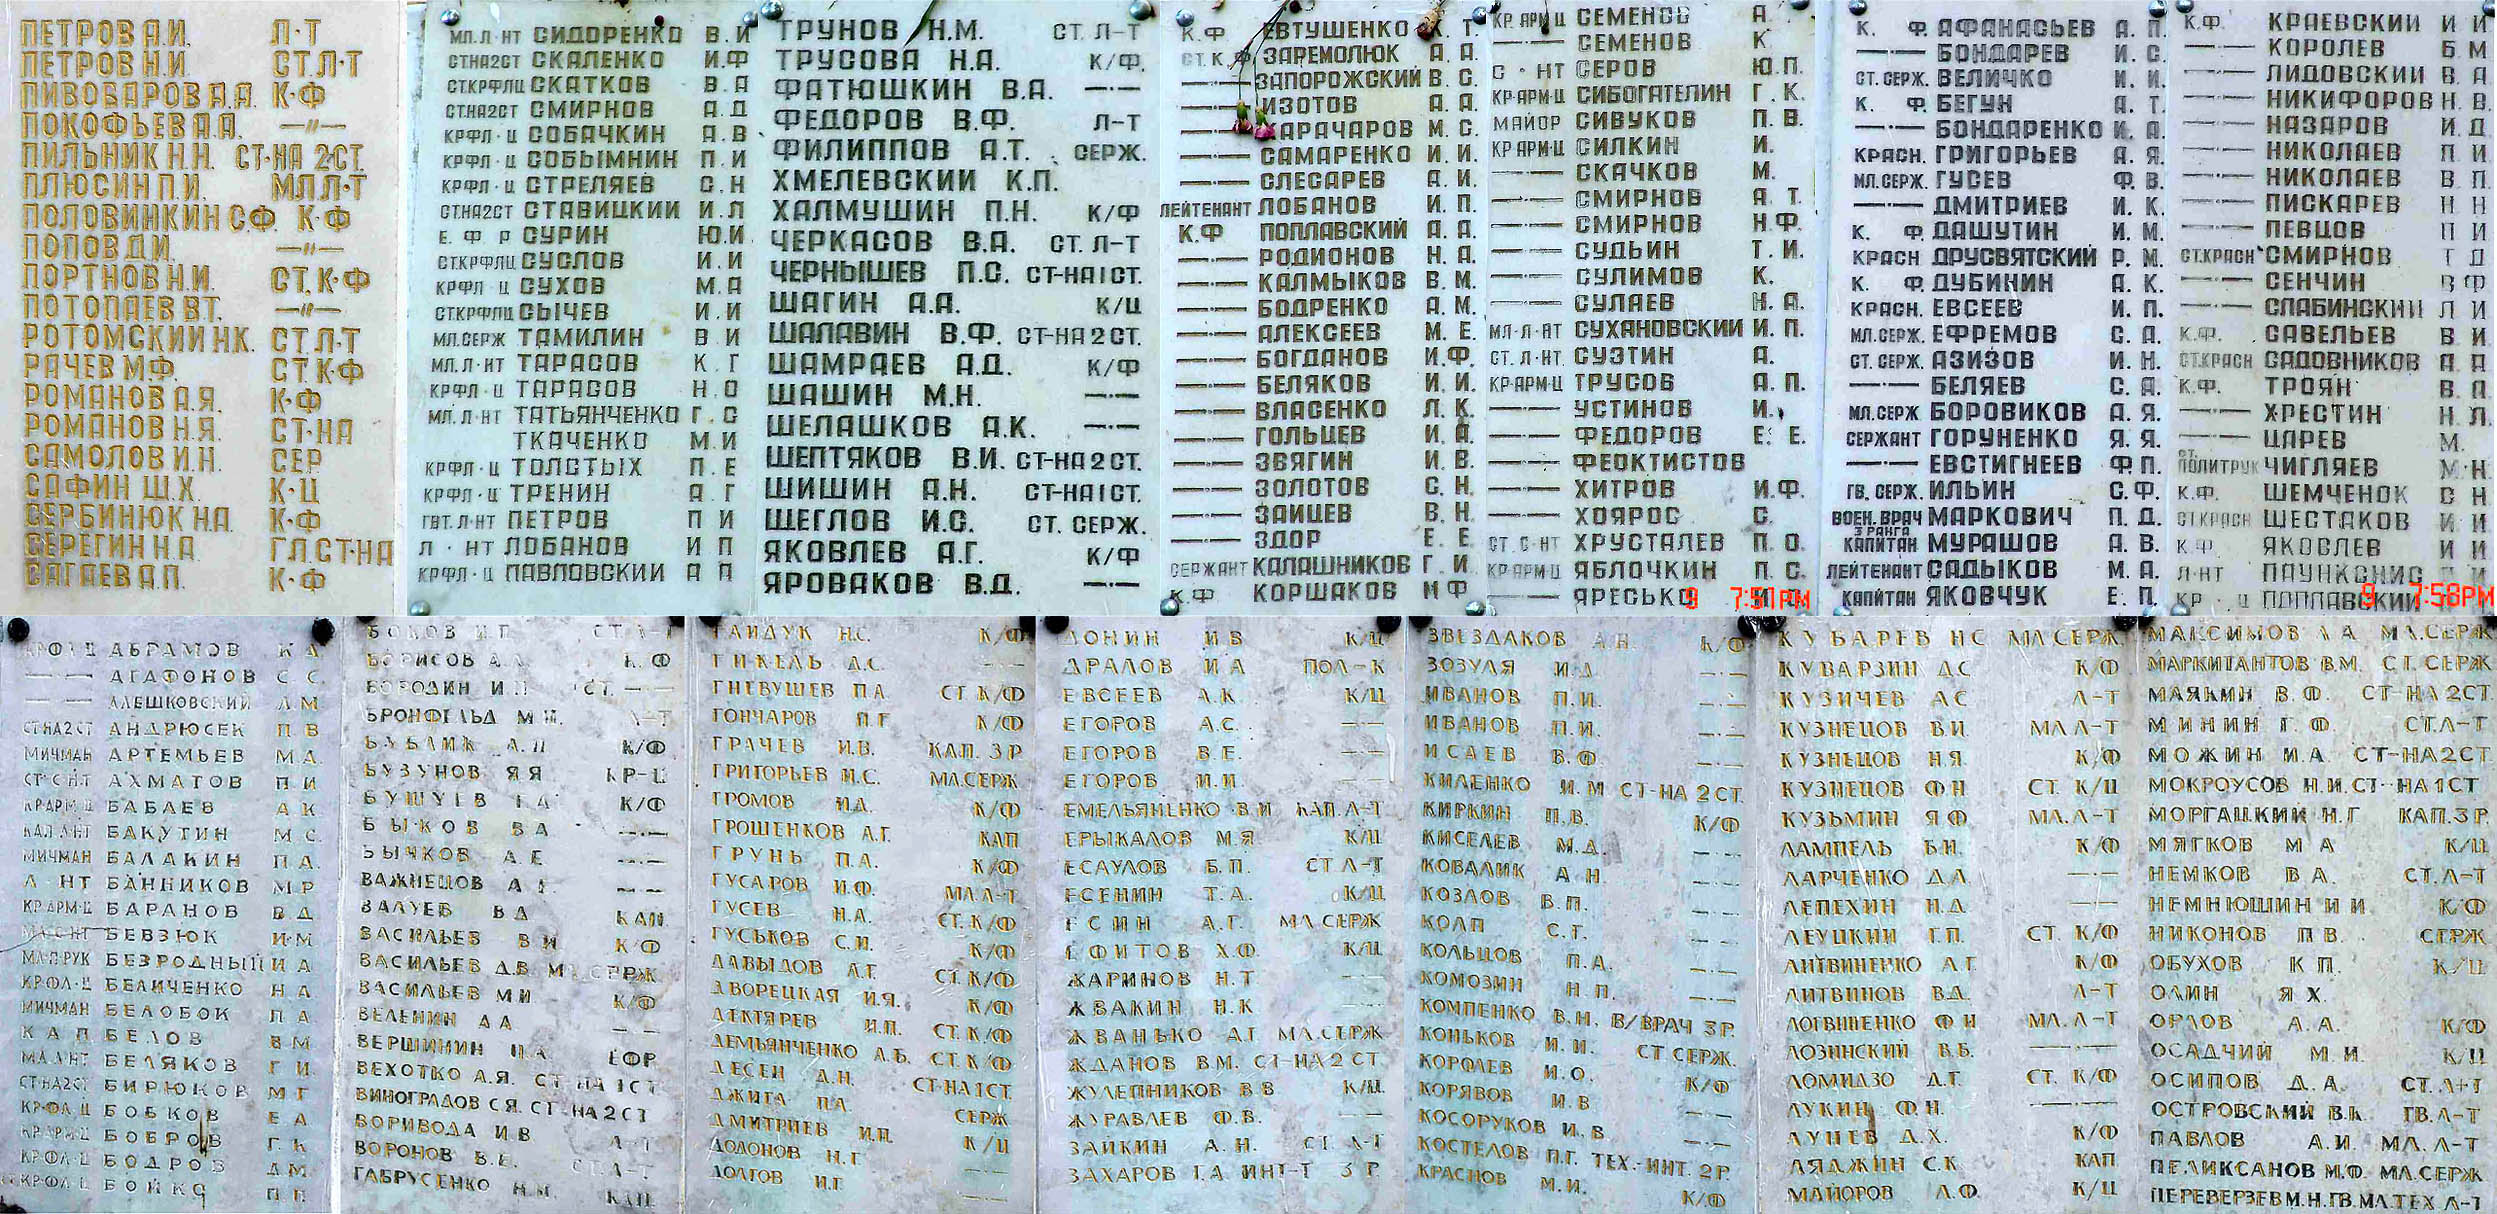 ПЕТРОВ А.И. Л·Т
ПЕТРОВ Н.И. СТ.Л·Т
ПИВОБАРОВ А.А. К·Ф
ПОКОФЬЕВ А.А. —〃—
ПИЛЬНИК Н.Н. СТ·НА 2СТ.
ПЛЮСИН П.И. МЛ.Л·Т
ПОЛОВИНКИН С.Ф. К·Ф
ПОПОВ Д.И. —〃—
ПОРТНОВ Н.И. СТ.К·Ф
ПОТОПАЕВ В.Т. —〃—
РОТОМСКИЙ Н.К. СТ.Л·Т
РАЧЕВ М.Ф. СТ.К·Ф
РОМАНОВ А.Я. К·Ф
РОМАНОВ Н.Я. СТ·НА
САМОЛОВ И.Н. СЕР
САФИН Ш.Х. К·Ц
СЕРБИНЮК Н.А. К·Ф
СЕРЕГИН Н.А. ГЛ.СТ·НА
САГАЕВ А.П. К·Ф
МЛ.Л·НТ СИДОРЕНКО В.И
СТ.НА2СТ СКАЛЕНКО И.Ф
СТ.КРФЛЦ СКАТКОВ В.А
СТ.НА2СТ СМИРНОВ А.Д
КРФЛ·Ц СОБАЧКИН А.В
КРФЛ·Ц СОБЫМНИН П.И
КРФЛ·Ц СТРЕЛЯЕВ С.Н
СТ.НА2СТ СТАВИЦКИЙ И.Л
Е.Ф Р СУРИН Ю.И
СТ.КРФЛЦ СУСЛОВ И.И
КРФЛ·Ц СУХОВ М.А
СТ.КРФЛЦ СЫЧЕВ И.И
МЛ.СЕРЖ ТАМИЛИН В И
МЛ.Л·НТ ТАРАСОВ К.Г
КРФЛ·Ц ТАРАСОВ Н.О
МЛ.Л·НТ ТАТЬЯНЧЕНКО Г.С
ТКАЧЕНКО М.И
КРФЛ·Ц ТОЛСТЫХ П.Е
КРФЛ·Ц ТРЕНИН А.Г
ГВТ.Л·НТ ПЕТРОВ П И
Л·НТ ЛОБАНОВ И П
КРФЛ·Ц ПАВЛОВСКИЙ А А
ТРУНОВ Н.М. СТ. Л–Т
ТРУСОВА Н.А. К/Ф.
ФАТЮШКИН В.А. —·—
ФЕДОРОВ В.Ф. Л–Т
ФИЛИППОВ А.Т. СЕРЖ.
ХМЕЛЕВСКИЙ К.П.
ХАЛМУШИН П.Н. К/Ф
ЧЕРКАСОВ В.А. СТ. Л–Т
ЧЕРНЫШЕВ П.С. СТ–НА1СТ.
ШАГИН А.А. К/Ц
ШАЛАВИН В.Ф. СТ–НА2СТ.
ШАМРАЕВ А.Д. К/Ф
ШАШИН М.Н. —·—
ШЕЛАШКОВ А.К. —·—
ШЕПТЯКОВ В.И. СТ–НА2СТ.
ШИШИН А.Н. СТ–НА1СТ.
ЩЕГЛОВ И.С. СТ. СЕРЖ.
ЯКОВЛЕВ А.Г. К/Ф
ЯРОВАКОВ В.Д. —·—
К.Ф ЕВТУШЕНКО Т.
СТ.К.Ф ЗАРЕМОЛЮК А.А.
—·— ЗАПОРОЖСКИЙ В.С.
—·— ИЗОТОВ А.А.
КАРАЧАРОВ М.С.
—·— САМАРЕНКО И.И.
—·— СЛЕСАРЕВ А.И.
ЛЕЙТЕНАНТ ЛОБАНОВ И.П.
К.Ф ПОПЛАВСКИЙ А.А.
—·— РОДИОНОВ Н.А.
—·— КАЛМЫКОВ В.М.
—·— БОДРЕНКО А.М.
—·— АЛЕКСЕЕВ М.Е.
—·— БОГДАНОВ И.Ф.
—·— БЕЛЯКОВ И.И.
—·— ВЛАСЕНКО Л.К.
—·— ГОЛЬЦЕВ И.А.
—·— ЗВЯГИН И.В.
—·— ЗОЛОТОВ С.Н.
—·— ЗАЙЦЕВ В.Н.
—·— ЗДОР Е.Е.
СЕРЖАНТ КАЛАШНИКОВ Г.И.
К.Ф КОРШАКОВ М Ф
КР АРМ Ц СЕМЕНОВ А.
—·— СЕМЕНОВ К
С·НТ СЕРОВ Ю.П.
КР·АРМ·Ц СИБОГАТЕЛИН Г.К.
МАЙОР СИВУКОВ П.В.
КР АРМ·Ц СИЛКИН И.
—·— СКАЧКОВ М.
—·— СМИРНОВ А.Т.
—·— СМИРНОВ Н.Ф.
—·— СУДЬИН Т.И.
—·— СУЛИМОВ К.
—·— СУЛЯЕВ Н.А.
МЛ·Л·НТ СУХАНОВСКИЙ И.П.
СТ.Л·НТ. СУЭТИН А.
КР·АРМ·Ц ТРУСОВ А.П.
—·— УСТИНОВ И.
—·— ФЕДОРОВ Е.Е.
—·— ФЕОКТИСТОВ
—·— ХИТРОВ И.Ф.
—·— ХОЯРОС С.
СТ.С·НТ ХРУСТАЛЕВ П.О.
КР·АРМ·Ц ЯБЛОЧКИН П.С.
—·— ЯРЕСЬКО
9 7:57PM
К. Ф. АФАНАСЬЕВ А.П.
—·— БОНДАРЕВ И.С.
СТ. СЕРЖ. ВЕЛИЧКО И.И.
К. Ф. БЕГУН А.Т.
—·— БОНДАРЕНКО И.А.
КРАСН. ГРИГОРЬЕВ А.Я.
МЛ. СЕРЖ. ГУСЕВ Ф.В.
—·— ДМИТРИЕВ И.К.
К. Ф. ДАШУТИН И.М.
КРАСН ДРУСВЯТСКИЙ Р.М.
К. Ф. ДУБИНИН А.К.
КРАСН. ЕВСЕЕВ И.П.
МЛ.СЕРЖ. ЕФРЕМОВ С.А.
СТ. СЕРЖ. АЗИЗОВ И.Н.
—·— БЕЛЯЕВ С.А.
МЛ.СЕРЖ БОРОВИКОВ А.Я.
СЕРЖАНТ ГОРУНЕНКО Я.Я.
—·— ЕВСТИГНЕЕВ Ф.П.
ГВ. СЕРЖ. ИЛЬИН С.Ф.
ВОЕН. ВРАЧ 3 РАНГА МАРКОВИЧ П.Д.
КАПИТАН МУРАШОВ А.В.
ЛЕЙТЕНАНТ САДЫКОВ М.А.
КАПИТАН ЯКОВЧУК Е.П.
К.Ф. КРАЕВСКИЙ И И
—·— КОРОЛЕВ Б М
—·— ЛИДОВСКИЙ В.А
—·— НИКИФОРОВ Н.В.
—·— НАЗАРОВ И.Д
—·— НИКОЛАЕВ П И
—·— НИКОЛАЕВ В П.
—·— ПИСКАРЕВ Н Н
—·— ПЕВЦОВ П И
СТ.КРАСН СМИРНОВ Г Д
—·— СЕНЧИН В Ф
—·— СЛАБИНСКИЙ Л И
К.Ф. САВЕЛЬЕВ В И.
СТ.КРАСН САДОВНИКОВ А А
К.Ф. ТРОЯН В.А
—·— ХРЕСТИН Н.Л.
—·— ЦАРЕВ М.
СТ. ПОЛИТРУК ЧИГЛЯЕВ М·Н.
К.Ф. ШЕМЧЕНОК С Н
СТ.КРАСН ШЕСТАКОВ И И
К.Ф ЯКОВЛЕВ И И
Л·НТ
КР Ц ПОПЛАВСКИЙ
9 7:58PM
КР·ФЛ Ц АБРАМОВ К А
—·— АГАФОНОВ С С.
—·— АЛЕШКОВСКИЙ А М
СТ·НА2СТ АНДРЮСЕК П В
МИЧМАН АРТЕМЬЕВ М А
СТ·С·НТ АХМАТОВ П И
КР·АРМ·Ц БАБАЕВ А К
КАП Л·НТ БАКУТИН М С.
МИЧМАН БАЛАКИН П А.
Л·НТ БАННИКОВ М Р
КР·АРМ·Ц БАРАНОВ В Д
БЕВЗЮК И·М
МЛ·П·РУК БЕЗРОДНЫЙ И А
КР·ФЛ·Ц БЕЛИЧЕНКО Н А
МИЧМАН БЕЛОБОК П А
К А П БЕЛОВ В М
МЛ Л·НТ БЕЛЯКОВ Г И
СТ·НА2СТ БИРЮКОВ М Г
КР·ФЛ Ц БОБКОВ Е А
КР·АРМ·Ц БОБРОВ Г К
КР·ФЛ·Ц БОДРОВ А М
КР·ФЛ Ц БОЙКО П П
БОКОВ И.П. СТ.Л–Т
БОРИСОВ А.А. К.Ф
БОРОДИН И.П СТ. —·—
БРОНФЕЛЬД М.И. Л–Т
БУБЛИК А.П К/Ф
БУЗУНОВ Я Я КР–Ц
БУШУЕВ Г А К/Ф
БЫКОВ В А —·—
БЫЧКОВ А.Е. —·—
ВАЖНЕЦОВ А —·—
ВАЛУЕВ В А КАП
ВАСИЛЬЕВ В И К/Ф
ВАСИЛЬЕВ Д.В МЛ.СЕРЖ
ВАСИЛЬЕВ М.И К/Ф
ВЕЛЕНИН А А — —
ВЕРШИНИН П.А. ЕФР.
ВЕХОТКО А.Я. СТ НА 1СТ.
ВИНОГРАДОВ С.Я. СТ–НА 2 СТ
ВОРИВОДА И.В Л–Т
ВОРОНОВ В.Е. СТ.Л–Т
ГАБРУСЕНКО Н.М. КАП.
ГАЙДУК Н.С. К/Ф
ГИКЕЛЬ Д.С. —·—
ГНЕВУШЕВ П.А. СТ. К/Ф
ГОНЧАРОВ П.Г К/Ф
ГРАЧЕВ И.В. КАП. 3 Р.
ГРИГОРЬЕВ И.С. МЛ.СЕРЖ
ГРОМОВ И.Д. К/Ф
ГРОШЕНКОВ А.Г. КАП
ГРУНЬ П.А. К/Ф
ГУСАРОВ И.Ф. МЛ.Л–Т
ГУСЕВ Н.А. СТ. К/Ф
ГУСЬКОВ С.И. К/Ф
ДАВЫДОВ А.Г. СТ. К/Ф
ДВОРЕЦКАЯ И.Я. К/Ф
ДЕКТЯРЕВ И.П. СТ. К/Ф
ДЕМЬЯНЧЕНКО А.Б. СТ. К/Ф
ДЕСЕН Д.Н. СТ–НА 1СТ.
ДЖИГА П.А. СЕРЖ
ДМИТРИЕВ И.П. К/Ц
ДОДОНОВ Н.Г —·—
ДОЛГОВ И.Г —·—
ДОНИН И В К/Ц
ДРАЛОВ И А ПОЛ–К
ЕВСЕЕВ А.К К/Ц
ЕГОРОВ А.С. —·—
ЕГОРОВ В.Е. —·—
ЕГОРОВ И.И. —·—
ЕМЕЛЬЯНЕНКО В.И КАП. Л–Т
ЕРЫКАЛОВ М.Я К/Ц
ЕСАУЛОВ Б.П. СТ Л–Т
ЕСЕНИН Т.А. К/Ц
ЕСИН А.Г. МЛ СЕРЖ
ЕФИТОВ Х.Ф. К/Ц
ЖАРИНОВ Н.Т —·—
ЖВАКИН Н.К —·—
ЖВАНЬКО А.Г. МЛ.СЕРЖ
ЖДАНОВ В.М. СТ–НА 2 СТ
ЖУЛЕПНИКОВ В.В К/Ц
ЖУРАВЛЕВ Ф.В. —·—
ЗАЙКИН А.Н. СТ. Л–Т
ЗАХАРОВ Г.А. ИНТ–Т 3 Р.
ЗВЕЗДАКОВ А Н. К/Ф
ЗОЗУЛЯ И.Д —·—
ИВАНОВ П.И. —·—
ИВАНОВ П.И. —·—
ИСАЕВ В.Ф. —·—
КИЛЕНКО И.М СТ–НА 2 СТ.
КИРКИН П.В. К/Ф
КИСЕЛЕВ М.Д. —·—
КОВАЛИК А Н. —·—
КОЗЛОВ В.П. —·—
КОЛП С.Т. —·—
КОЛЬЦОВ П.А. —·—
КОМОЗИН Н.П. —·—
КОМПЕНКО В.Н. В/ВРАЧ 3 Р.
КОНЬКОВ И.И. СТ СЕРЖ.
КОРОЛЕВ И.О. К/Ф
КОРЯВОВ И.В —·—
КОСОРУКОВ И.В. —·—
КОСТЕЛОВ П.Г. ТЕХ.–ИНТ. 2 Р.
КРАСНОВ М.И. К/Ф
КУБАРЕВ Н С МЛ.СЕРЖ
КУВАРЗИН Д.С К/Ф
КУЗИЧЕВ А С Л–Т
КУЗНЕЦОВ В.И МЛ Л–Т
КУЗНЕЦОВ Н.Я К/Ф
КУЗНЕЦОВ Ф Н СТ. К/Ц
КУЗЬМИН Я.Ф МЛ. Л–Т
ЛАМПЕЛЬ Б.И. К/Ф
ЛАРЧЕНКО Д.А —·—
ЛЕПЕХИН Н.Д —·—
ЛЕУЦКИЙ Г.П. СТ. К/Ф
ЛИТВИНЕРКО А.Г К/Ф
ЛИТВИНОВ В.Д. Л–Т
ЛОГВИНЕНКО Ф И МЛ. Л–Т
ЛОЗИНСКИЙ В.Б. —·—
ЛОМИДЗО Д.Г. СТ. К/Ф
ЛУКИН Ф.Н. —·—
ЛУНЕВ Д.Х. К/Ф
ЛЯДЖИН С.К КАП
МАЙОРОВ А.Ф. К/Ц
МАКСИМОВ А А МЛ.СЕРЖ
МАРКИТАНТОВ В.М. СТ. СЕРЖ
МАЯКИН В.Ф. СТ–НА 2СТ.
МИНИН Г.Ф. СТ.Л–Т
МОЖИН И.А. СТ–НА2СТ.
МОКРОУСОВ Н.И. СТ–НА 1СТ
МОРГАЦКИЙ Н.Г КАП.3 Р.
МЯГКОВ М А К/Ц
НЕМКОВ В А. СТ.Л–Т
НЕМНЮШИН И И. К/Ф
НИКОНОВ П В. СЕРЖ
ОБУХОВ К П. К/Ц
ОЛИН Я Х.
ОРЛОВ А.А. К/Ф
ОСАДЧИЙ М.И. К/Ц
ОСИПОВ Д.А. СТ. Л–Т
ОСТРОВСКИЙ В.К. ГВ.Л–Т
ПАВЛОВ А.И. МЛ. Л–Т
ПЕЛИКСАНОВ М.Ф. МЛ.СЕРЖ
ПЕРЕВЕРЗЕВ М.Н. ГВ.МЛ.ТЕХ Л–Т